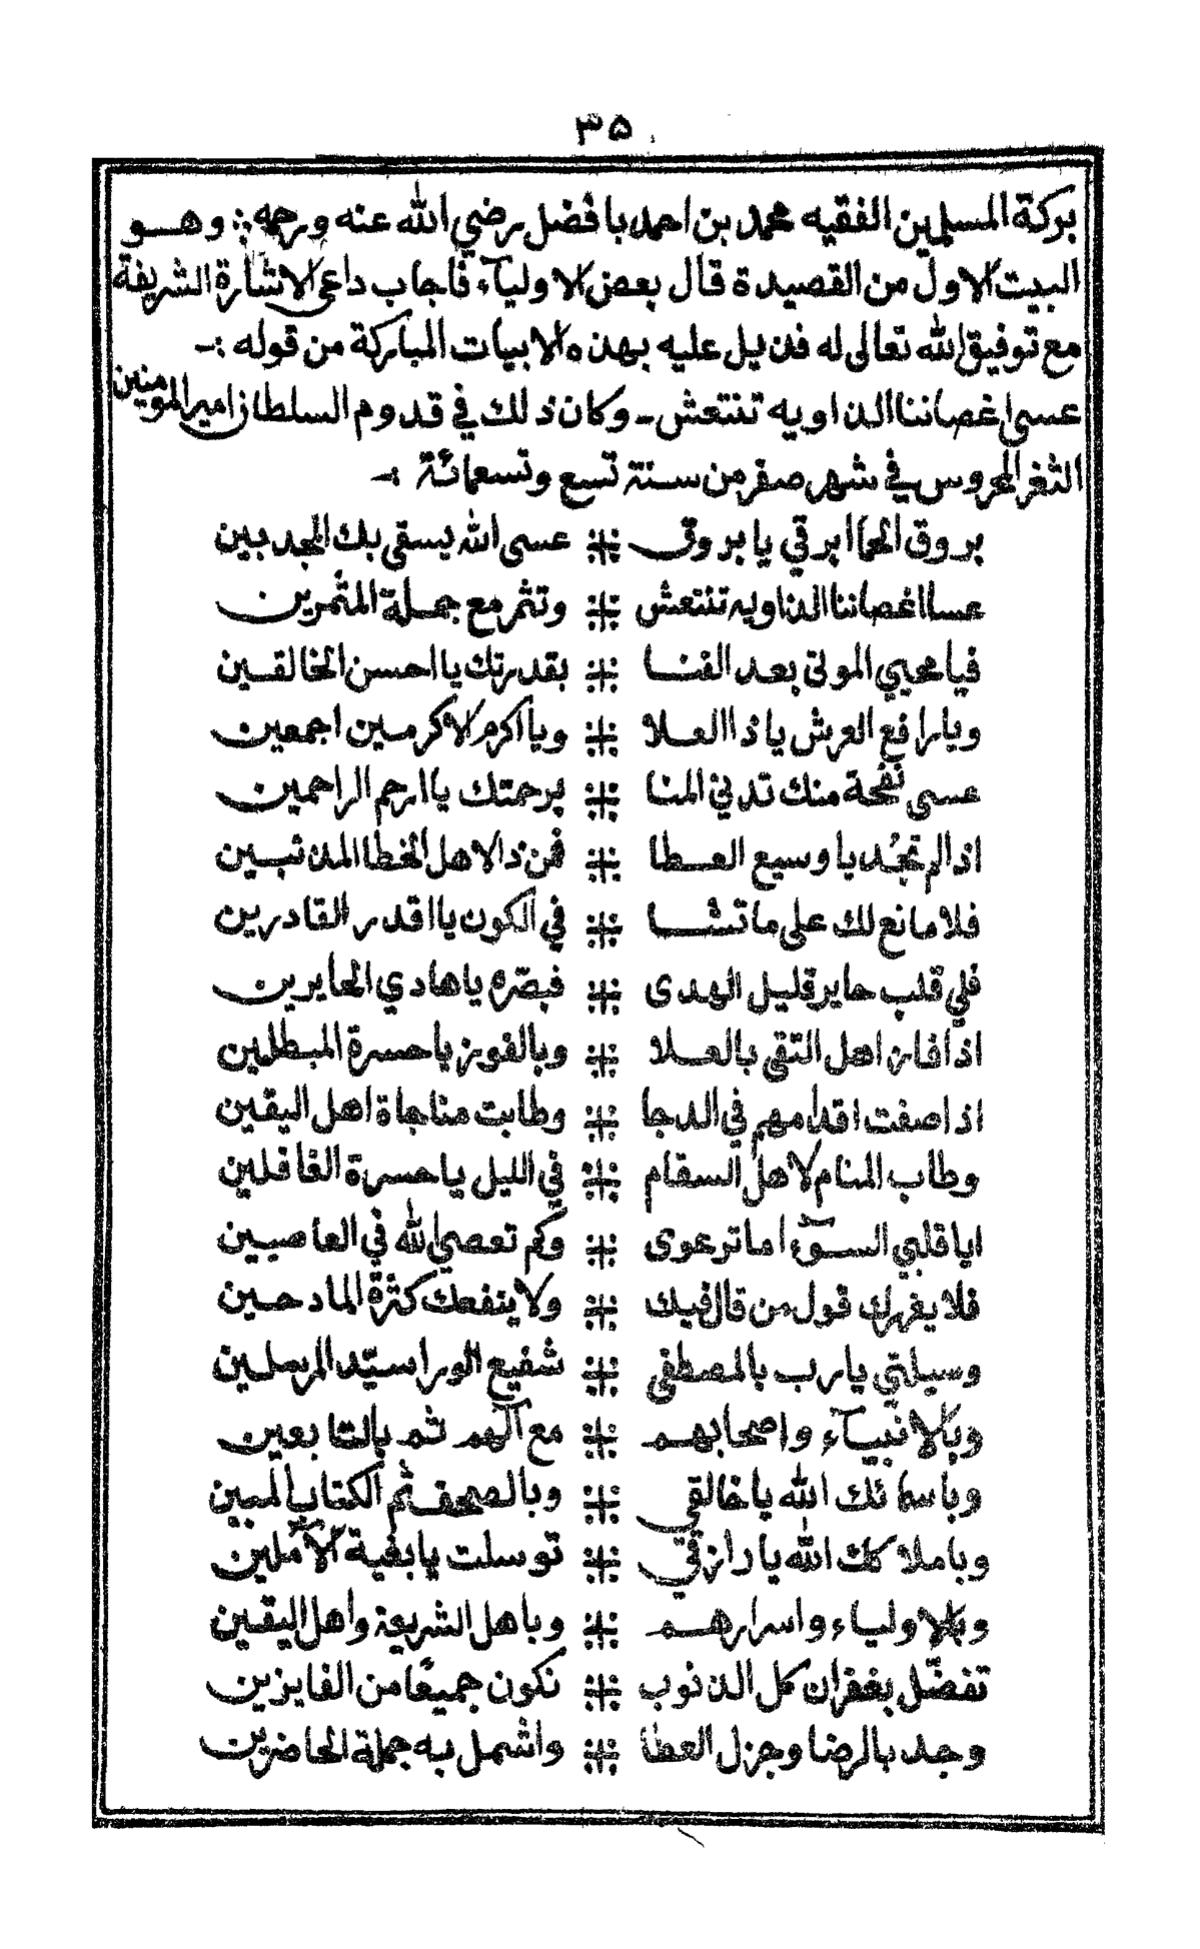 ٣٥
بركة المسلمين الفقيه محمد بن احمد با فضل رضي الله عنه ورحمه :. وهو
البيت الاول من القصيدة قال بعض الاولياء فاجاب داعي الاشارة الشريفة
مع توفيق الله تعالى له فذيل عليه بهذه الابيات المباركة من قوله :-
عسى اغصاننا الذاويه تنتعش - وكان ذلك في قدوم السلطان امير المومنين
الثغر المحروس في شهر صفر من سنة تسع وتسعمائة :-
بروق الحما ابرقي يا بروق ⁘ عسى الله يسقي بك المجدبين
عسا اغصاننا الذاويه تنتعش ⁘ وتثمر مع جملة المثمرين
فيا محيي الموتى بعد الفنا ⁘ بقدرتك يا احسن الخالقين
ويا رافع العرش يا ذا العلا ⁘ ويا اكرم الاكرمين اجمعين
عسى نفحة منك تدني المنا ⁘ برحمتك يا ارحم الراحمين
اذا لم تجُد يا وسيع العطا ⁘ فمن ذا لاهل الخطا المذنبين
فلا مانع لك على ما تشا ⁘ في الكون يا اقدر القادرين
فلي قلب حاير قليل الهدى ⁘ فبصّره يا هادي الحايرين
اذا فاز اهل التقى بالعلا ⁘ وبالفوز يا حسرة المبطلين
اذا صفت اقدامهم في الدجا ⁘ وطابت مناجاة اهل اليقين
وطاب المنام لاهل السقام ⁘ في الليل يا حسرة الغافلين
ايا قلبي السوء اما ترعوى ⁘ وكم تعصي الله في العاصيين
فلا يغررك قول من قال فيك ⁘ ولا ينفعك كثرة المادحين
وسيلتي يا رب بالمصطفى ⁘ شفيع الورا سيّد المرسلين
وبالانبيآء واصحابهم ⁘ مع آلهم ثم بالتابعين
وباسمائك الله يا خالقي ⁘ وبالصحف ثم الكتاب المبين
وباملاكك الله يا رازقي ⁘ توسلت يا بغية الآملين
وبالاولياء واسرارهم ⁘ وباهل الشريعة واهل اليقين
تفضّل بغفران كل الذنوب ⁘ نكون جميعًا من الفايزين
وجد بالرضا وجزل العطا ⁘ واشمل به جملة الحاضرين